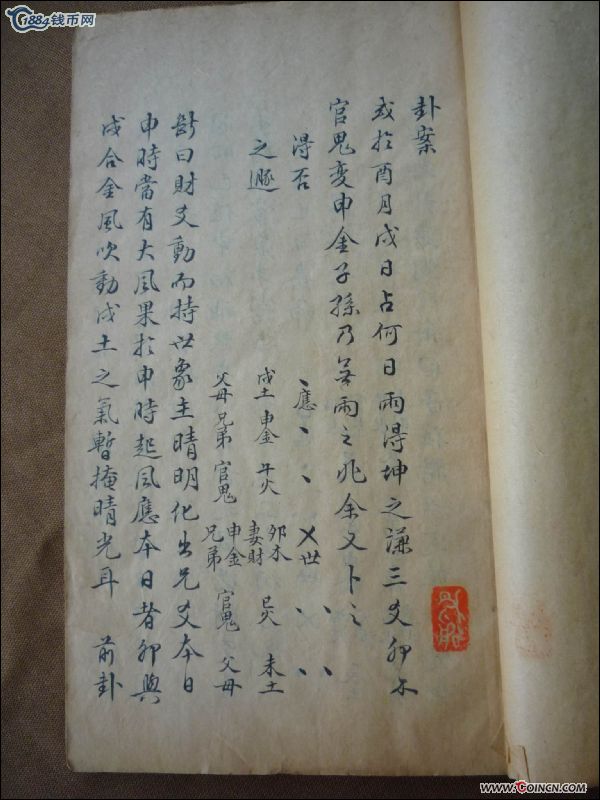 1884钱币网
卦案
或於酉月戌日占何日雨得坤之謙三爻卯木
官鬼變申金子孫乃無雨之兆余又卜之
得否 、應 、 、 乂世 、、 、、
之遯 戌土 申金 午火 卯木妻財 巳火 未土
父母 兄弟 官鬼 申金兄弟 官鬼 父母
斷曰財爻動而持世象主晴明化出兄爻本日
申時當有大風果於申時起風應本日者卯與
戌合金風吹動戌土之氣暫掩晴光耳 前卦
www.COINCN.com